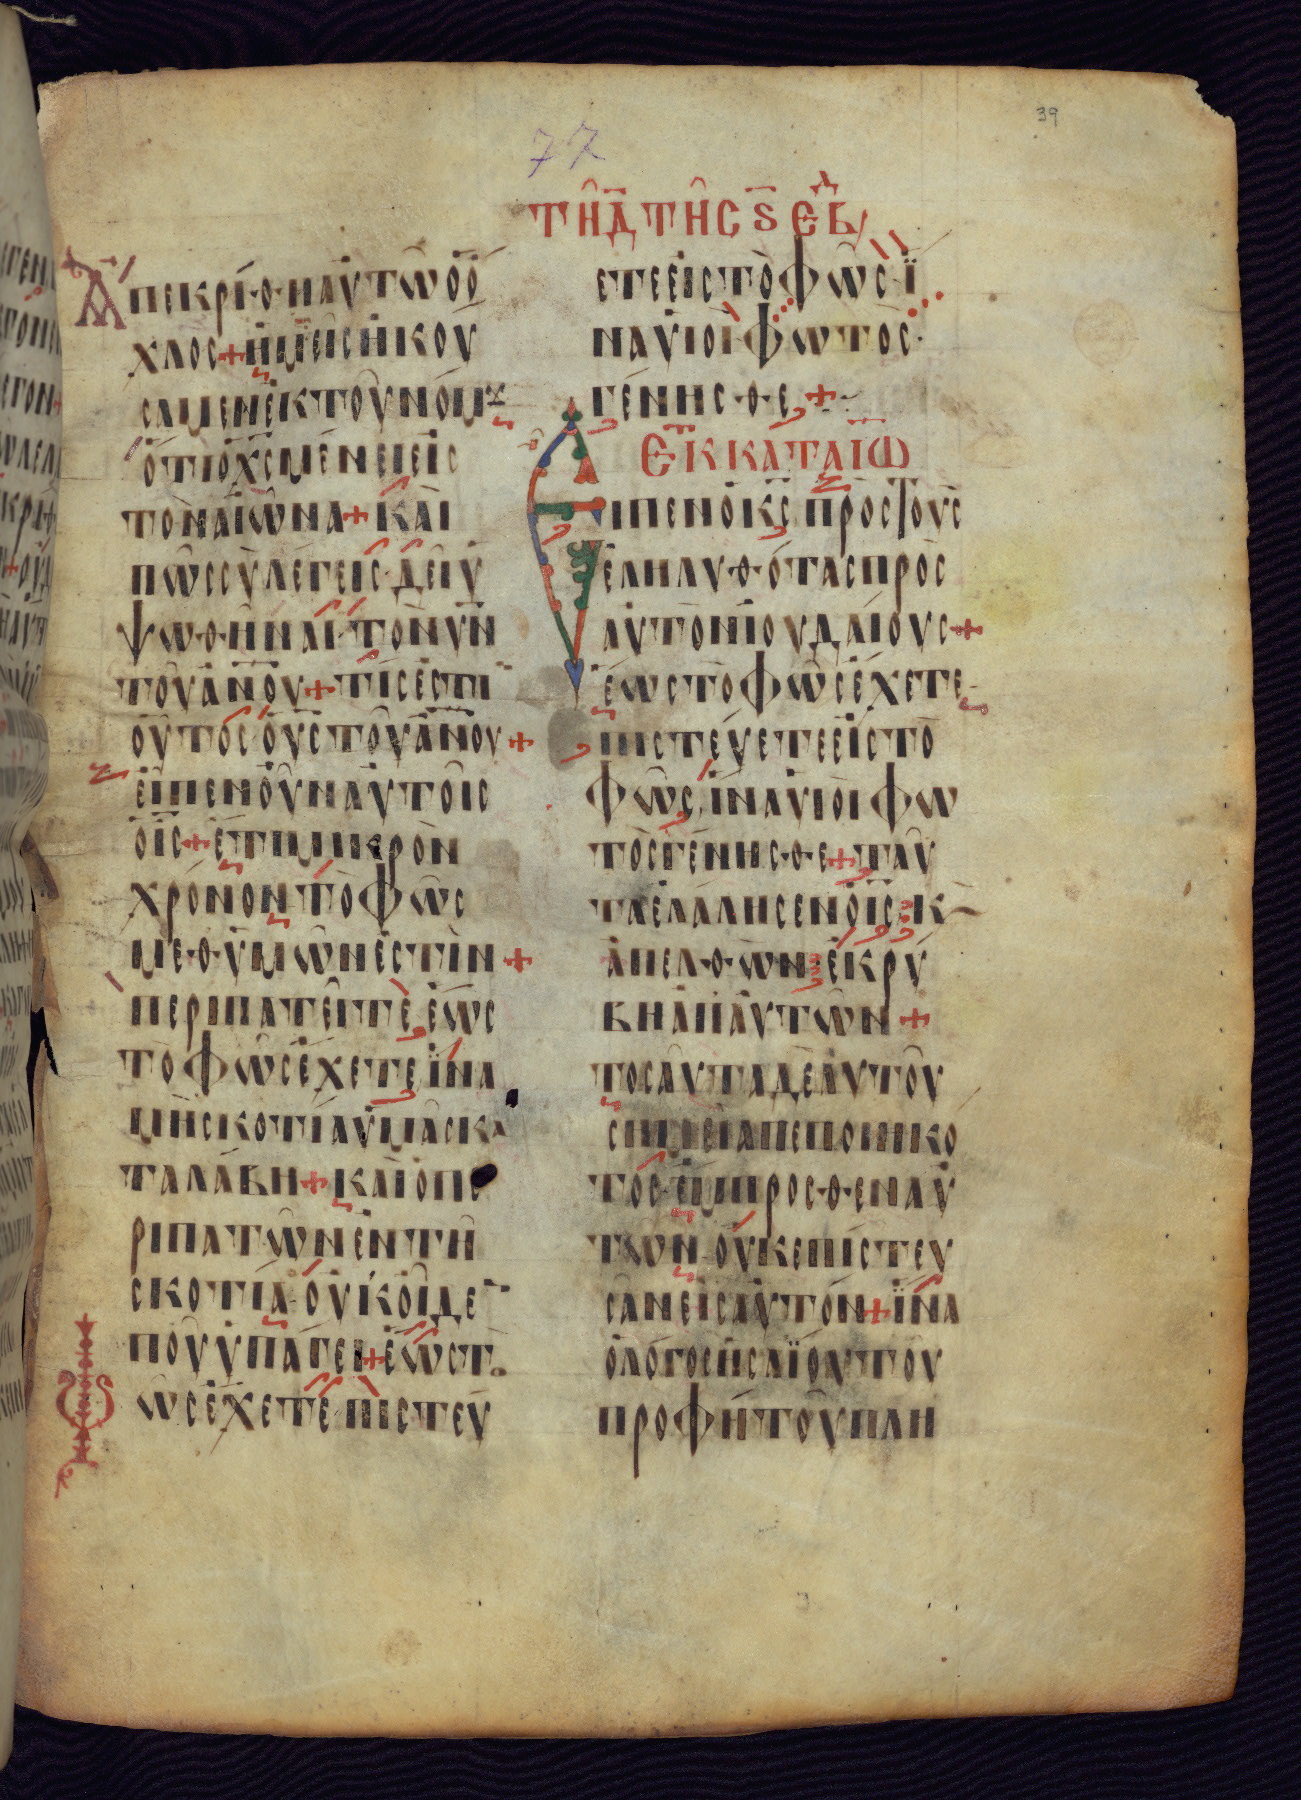 39
77
ΤΗ Δ ΤΗС Ϛ ЄΒΔ
ΑΠΕΚΡΙΘΗ ΑΥΤΩ Ο Ο
ΧΛΟС + ΗΜΕΙС ΗΚΟΥ
СΑΜΕΝ ΕΚ ΤΟΥ ΝΟΜΟΥ
ΟΤΙ Ο ΧС ΜΕΝΕΙ ΕΙС
ΤΟΝ ΑΙΩΝΑ + ΚΑΙ
ΠΩС СΥ ΛΕΓΕΙС · ΔΕΙ Υ
ΨΩΘΗΝΑΙ ΤΟΝ ΥΝ
ΤΟΥ ΑΝΟΥ + ΤΙС ΕСΤΙ
ΟΥΤΟС Ο ΥС ΤΟΥ ΑΝΟΥ +
ΕΙΠΕΝ ΟΥΝ ΑΥΤΟΙС
Ο ΙС + ΕΤΙ ΜΙΚΡΟΝ
ΧΡΟΝΟΝ ΤΟ ΦΩС
ΜΕΘ ΥΜΩΝ ΕСΤΙΝ +
ΠΕΡΙΠΑΤΕΙΤΕ ΕΩС
ΤΟ ΦΩС ΕΧΕΤΕ, ΙΝΑ
ΜΗ СΚΟΤΙΑ ΥΜΑС ΚΑ
ΤΑΛΑΒΗ + ΚΑΙ Ο ΠΕ
ΡΙΠΑΤΩΝ ΕΝ ΤΗ
СΚΟΤΙΑ · ΟΥΚ ΟΙΔΕ
ΠΟΥ ΥΠΑΓΕΙ + ΕΩС ΤΟ
ΦΩС ΕΧΕΤΕ · ΠΙСΤΕΥ
ΕΤΕ ΕΙС ΤΟ ΦΩС · Ι
ΝΑ ΥΙΟΙ ΦΩΤΟС ·
ΓΕΝΗСΘΕ +
ЄΚ Κ ΚΑΤΑ ΙΩ
ΕΙΠΕΝ Ο ΚС ΠΡΟС ΤΟΥС
ΕΛΗΛΥΘΟΤΑС ΠΡΟС
ΑΥΤΟΝ ΙΟΥΔΑΙΟΥС +
ΕΩС ΤΟ ΦΩС ΕΧΕΤΕ
ΠΙСΤΕΥΕΤΕ ΕΙС ΤΟ
ΦΩС, ΙΝΑ ΥΙΟΙ ΦΩ
ΤΟС ΓΕΝΗСΘΕ + ΤΑΥ
ΤΑ ΕΛΑΛΗСΕΝ Ο ΙС · Κ
ΑΠΕΛΘΩΝ ΕΚΡΥ
ΒΗ ΑΠ ΑΥΤΩΝ +
ΤΟСΑΥΤΑ ΔΕ ΑΥΤΟΥ
СΗΜΕΙΑ ΠΕΠΟΙΗΚΟ
ΤΟС · ΕΜΠΡΟСΘΕΝ ΑΥ
ΤΩΝ · ΟΥΚ ΕΠΙСΤΕΥ
СΑΝ ΕΙС ΑΥΤΟΝ + ΙΝΑ
Ο ΛΟΓΟС ΗСΑΙΟΥ ΤΟΥ
ΠΡΟΦΗΤΟΥ ΠΛΗ